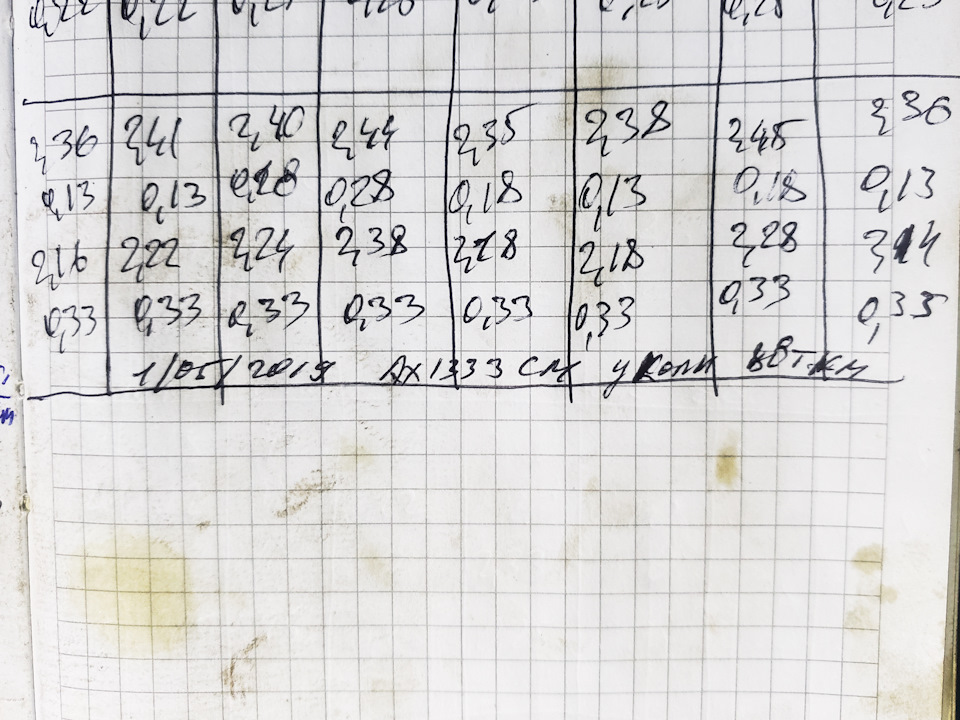 0,22 0,22
2,36 2,41 2,40 2,44 2,35 2,38 2,45 2,36
0,13 0,13 0,18 0,28 0,18 0,13 0,18 0,13
2,16 2,22 2,24 2,38 2,18 2,18 2,28 2,14
0,33 0,33 0,33 0,33 0,33 0,33 0,33 0,33
1/05/2019 Ах1333 см у Коли